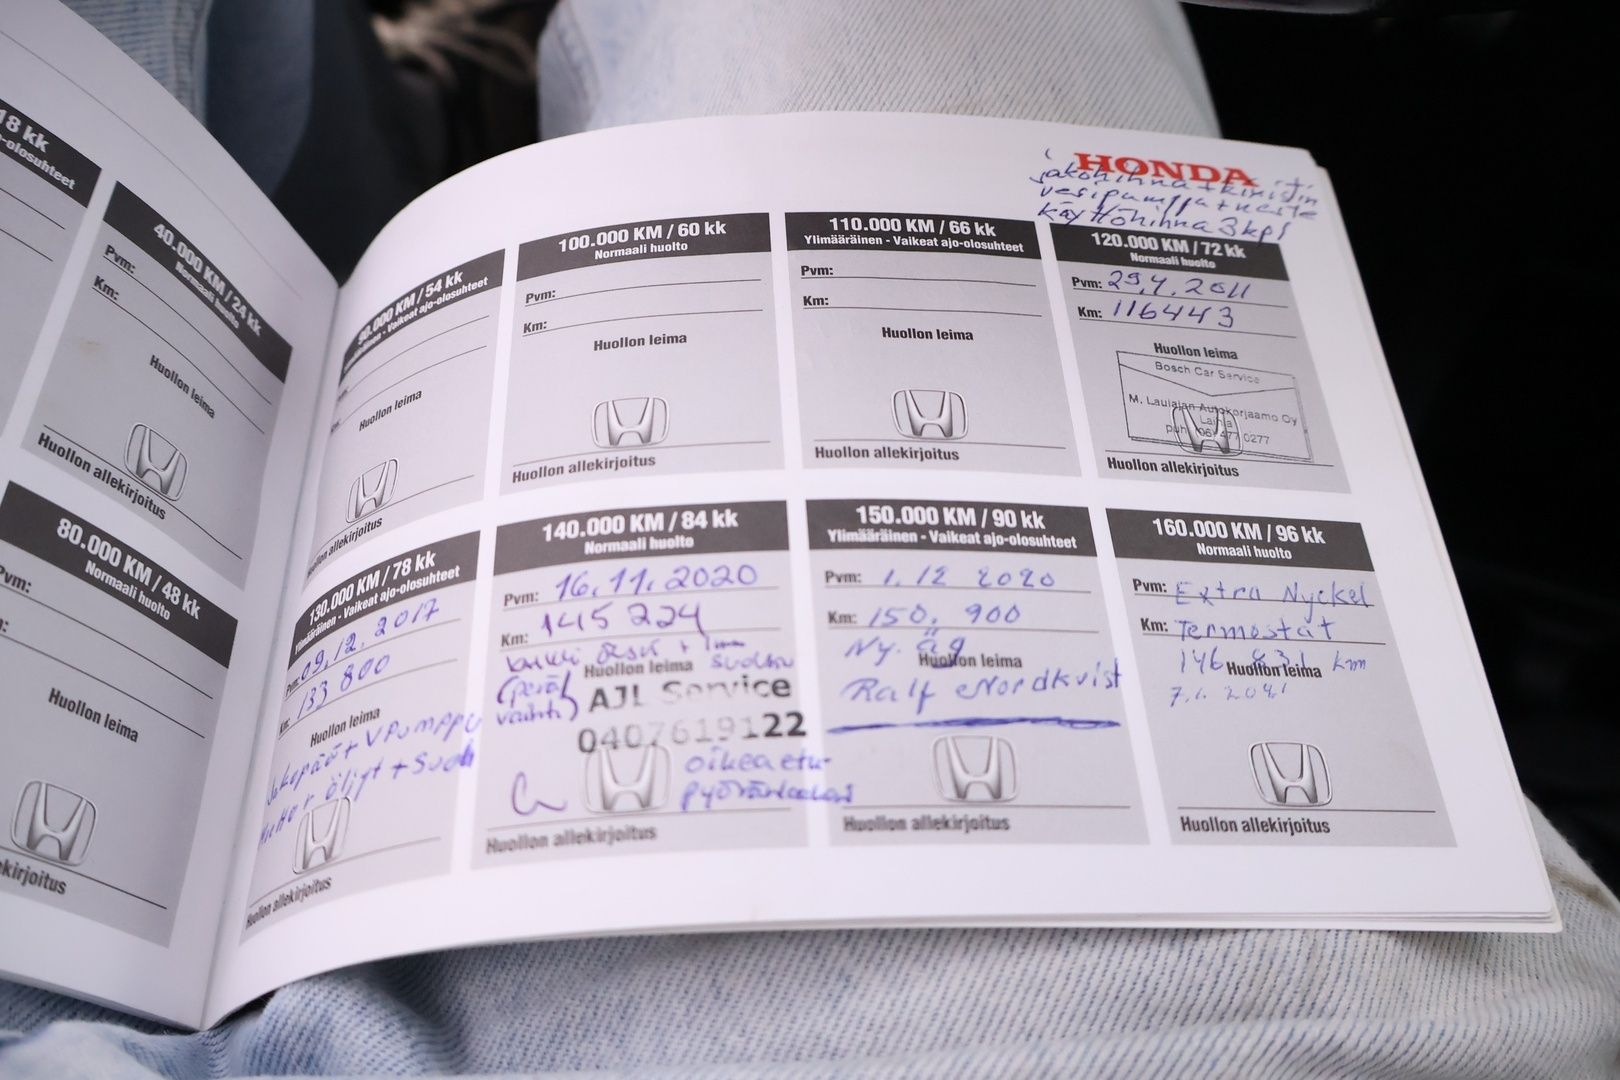 18 kk
-olosuhteet
40.000 KM / 24 kk
Normaali huolto
Pvm:
Km:
Huollon leima
Huollon allekirjoitus
80.000 KM / 48 kk
Normaali huolto
Pvm:
Huollon leima
HONDA
jakohihna + kiristin
vesipumppu + neste
Käyttöhihna 3kpl
.000 KM / 54 kk
- Vaikeat ajo-olosuhteet
Huollon leima
Huollon allekirjoitus
100.000 KM / 60 kk
Normaali huolto
Pvm:
Km:
Huollon leima
Huollon allekirjoitus
110.000 KM / 66 kk
Ylimääräinen - Vaikeat ajo-olosuhteet
Pvm:
Km:
Huollon leima
Huollon allekirjoitus
120.000 KM / 72 kk
Normaali huolto
Pvm: 29.4.2011
Km: 116443
Huollon leima
Bosch Car Service
M. Laulajan Autokorjaamo Oy
Laihia
puh. 06 477 0277
Huollon allekirjoitus
130.000 KM / 78 kk
Ylimääräinen - Vaikeat ajo-olosuhteet
Pvm: 09.12.2017
Km: 133 800
Huollon leima
Jakopää + VPumppu
öljyt + Suod
Huollon allekirjoitus
140.000 KM / 84 kk
Normaali huolto
Pvm: 16.11.2020
Km: 145 224
Huollon leima
(perä
vaihto)
AJL Service
0407619122
oikea etu-
pyöränlaakeri
Huollon allekirjoitus
150.000 KM / 90 kk
Ylimääräinen - Vaikeat ajo-olosuhteet
Pvm: 1.12 2020
Km: 150.900
Ny. äg
Huollon leima
Ralf Nordkvist
Huollon allekirjoitus
160.000 KM / 96 kk
Normaali huolto
Pvm: Extra Nyckel
Km: Termostat
Huollon leima
km
Huollon allekirjoitus